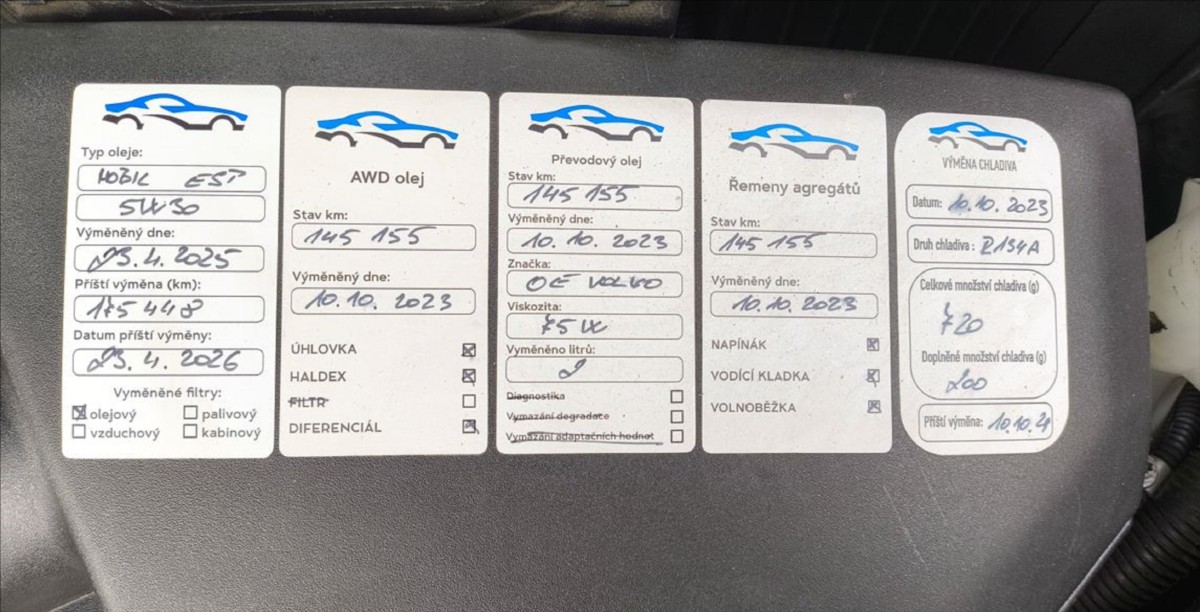 Typ oleje:
MOBIL ESP
5W30
Výměněný dne:
23.4.2025
Příští výměna (km):
175 448
Datum příští výměny:
23.4.2026
Vyměněné filtry:
olejový palivový
vzduchový kabinový
AWD olej
Stav km:
145 155
Výměněný dne:
10.10. 2023
ÚHLOVKA
HALDEX
FILTR
DIFERENCIÁL
Převodový olej
Stav km:
145 155
Výměněný dne:
10.10. 2023
Značka:
OE VOLVO
Viskozita:
75W
Vyměněno litrů:
2
Diagnostika
Vymazání degradace
Vymazání adaptačních hodnot
Řemeny agregátů
Stav km:
145 155
Výměněný dne:
10.10. 2023
NAPÍNÁK
VODÍCÍ KLADKA
VOLNOBĚŽKA
VÝMĚNA CHLADIVA
Datum: 10.10. 2023
Druh chladiva: R134A
Celkové množství chladiva (g)
720
Doplněné množství chladiva (g)
200
Příští výměna: 10.10.